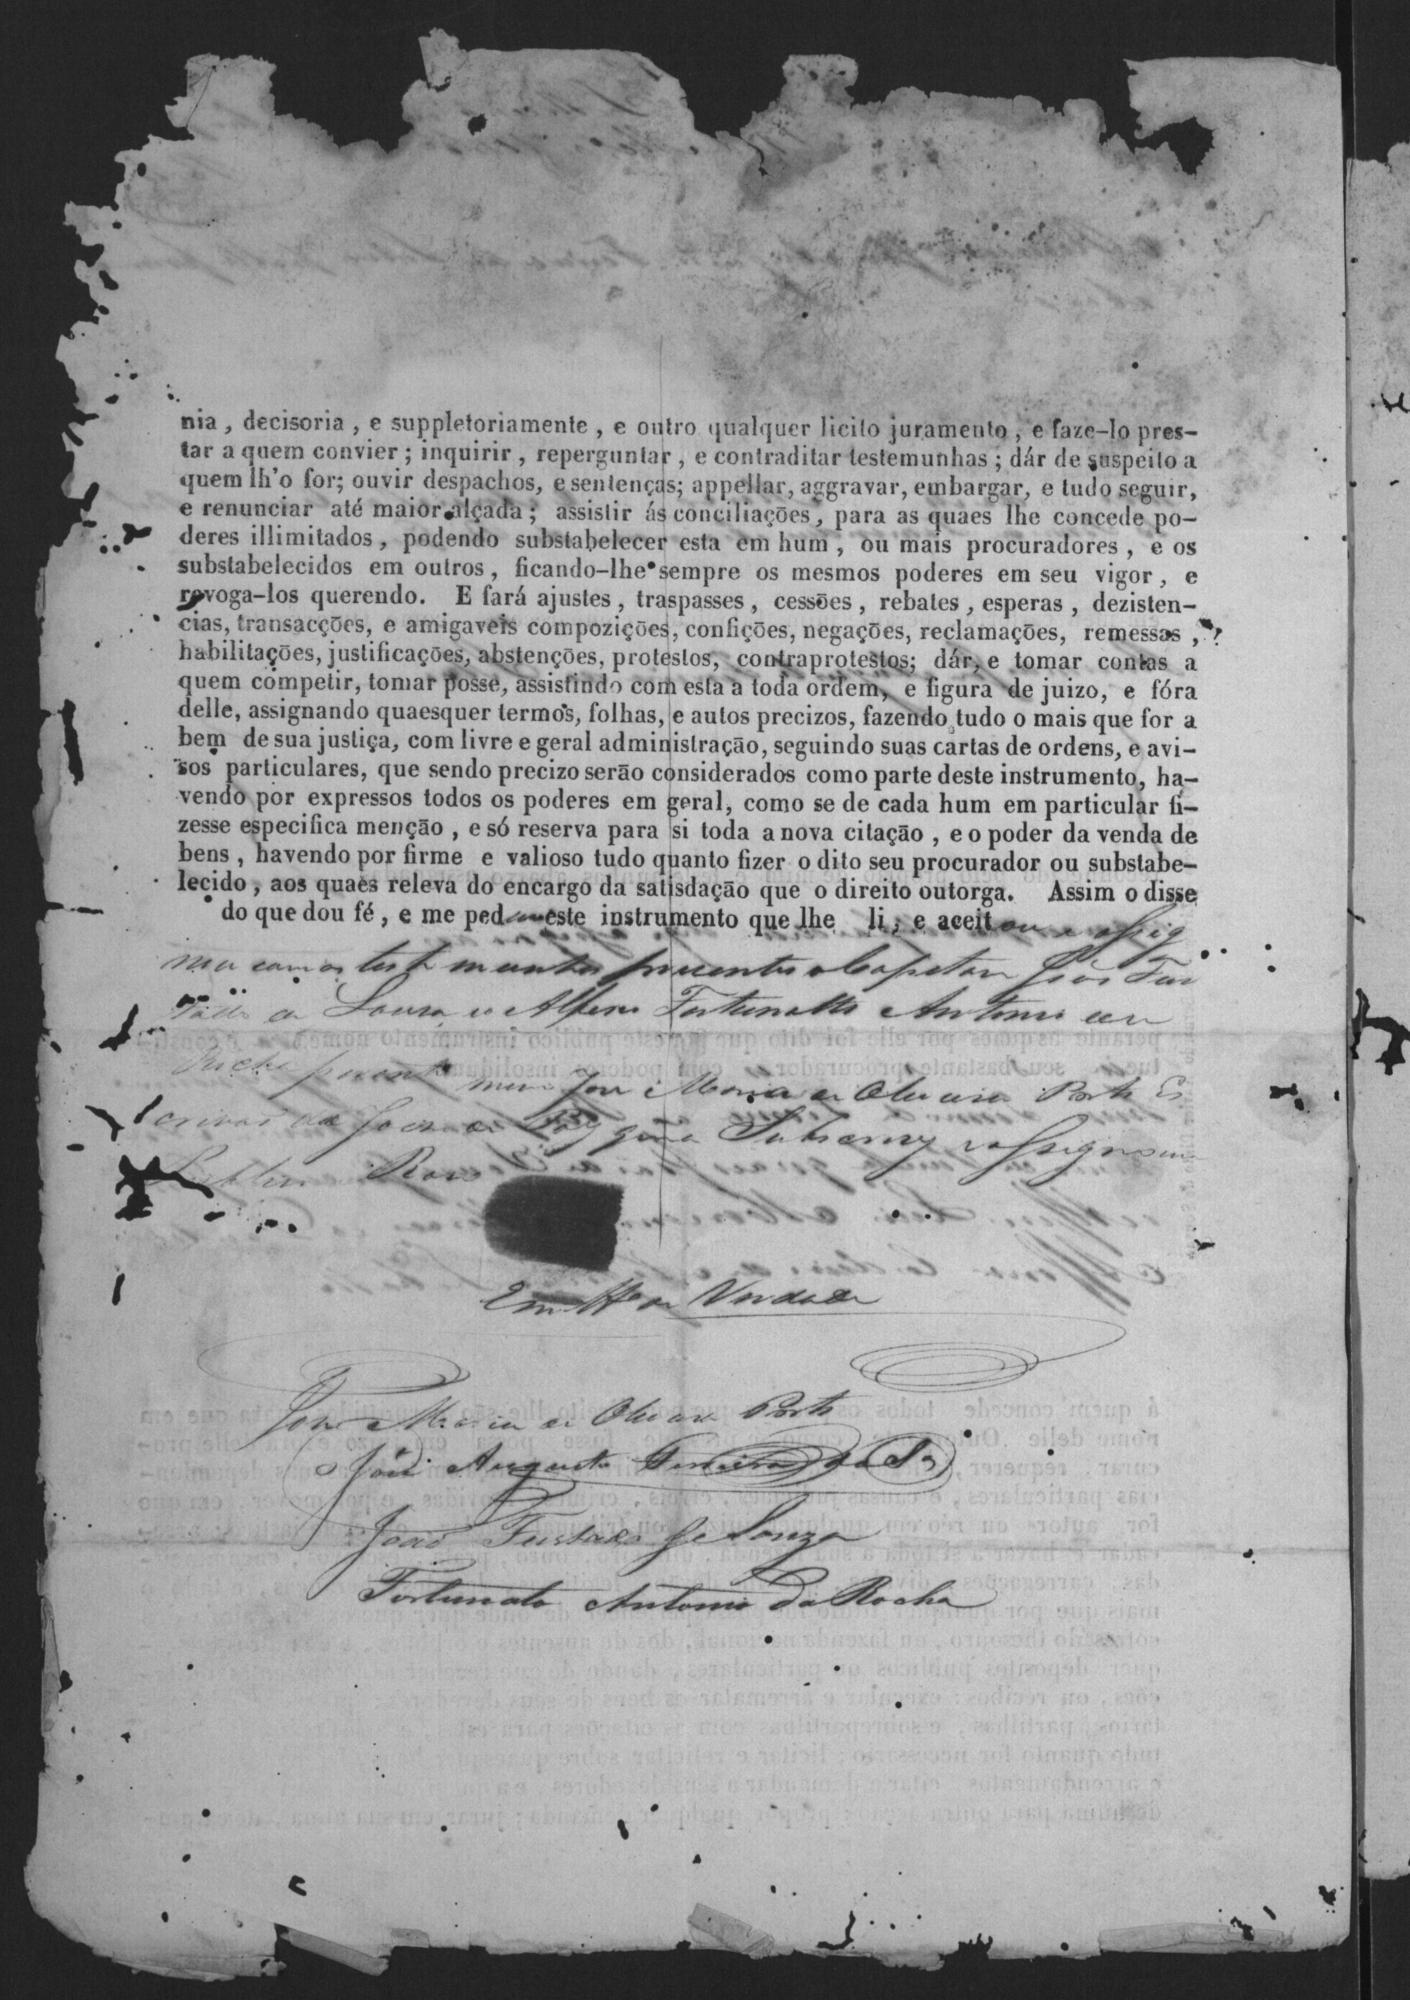 nia, decisoria, e suppletoriamente, e outro qualquer licito juramento, e faze-lo pres-
tar a quem convier; inquirir, reperguntar, e contraditar testemunhas; dár de suspeito a
quem lh'o for; ouvir despachos, e sentenças; appellar, aggravar, embargar, e tudo seguir,
e renunciar até maior alçada; assistir ás conciliações, para as quaes lhe concede po-
deres illimitados, podendo substabelecer esta em hum, ou mais procuradores, e os
substabelecidos em outros, ficando-lhe sempre os mesmos poderes em seu vigor, e
revoga-los querendo. E fará ajustes, traspasses, cessões, rebates, esperas, dezisten-
cias, transacções, e amigaveis compozições, confições, negações, reclamações, remessas,
habilitações, justificações, abstenções, protestos, contraprotestos; dár, e tomar contas a
quem competir, tomar posse, assistindo com esta a toda ordem, e figura de juizo, e fóra
delle, assignando quaesquer termos, folhas, e autos precizos, fazendo tudo o mais que for a
bem de sua justiça, com livre e geral administração, seguindo suas cartas de ordens, e avi-
sos particulares, que sendo precizo serão considerados como parte deste instrumento, ha-
vendo por expressos todos os poderes em geral, como se de cada hum em particular fi-
zesse especifica menção, e só reserva para si toda a nova citação, e o poder da venda de
bens, havendo por firme e valioso tudo quanto fizer o dito seu procurador ou substabe-
lecido, aos quaes releva do encargo da satisdação que o direito outorga. Assim o disse
do que dou fé, e me ped este instrumento que lhe li, e aceitou e assig
nou com as testemunhas presentes o Capitam João Fur
tado de Souza, e Alferes Fortunatto Antonio da
Rocha perante mim Jose Maria de Oliveira Porto Es
crivão da de Paz que a Subscrevy e assigno em
Publico Raso
Em de Verdade
Jose Maria de Oliveira Porto
José Augusto Ferreira da Sa
João Furtado de Souza
Fortunato Antonio da Rocha